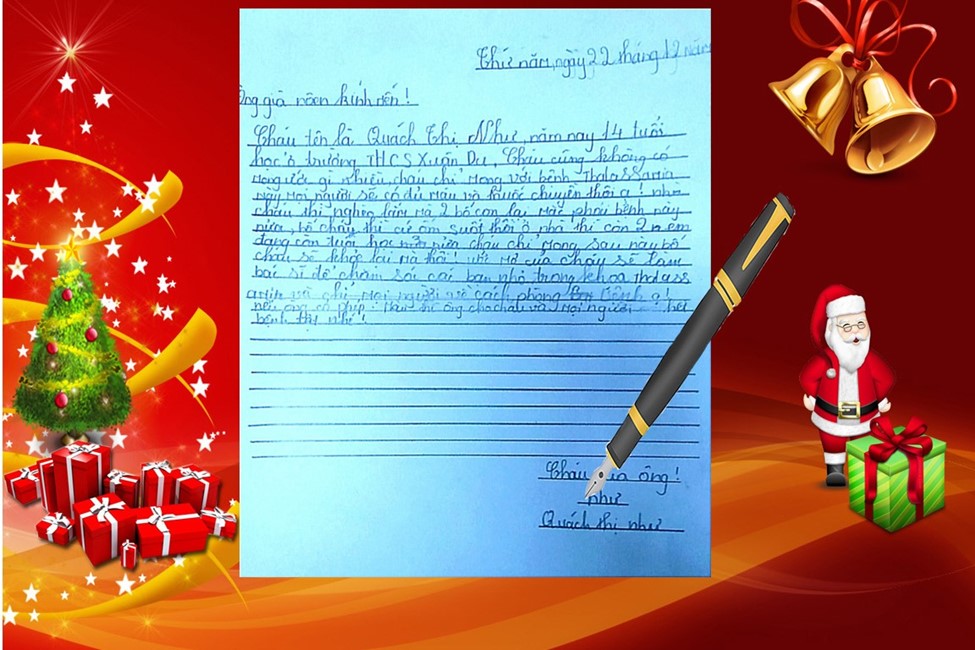 Thứ năm, ngày 22 tháng 12 năm
Ông già noen kính mến!
Cháu tên là Quách Thị Như, năm nay 14 tuổi
học ở trường THCS Xuân Du, Cháu cũng không có
mong ước gì nhiều, cháu chỉ mong với bệnh Thalassamia
này mọi người sẽ có đủ máu và thuốc chuyền thôi ạ! nhà
cháu thì nghèo lắm mà 2 bố con lại mắc phải bệnh này
nữa, bố cháu thì cứ ốm suốt thôi ở nhà thì còn 2 em
đang còn tuổi học nữa cháu chỉ mong sau này bố
cháu sẽ khỏe lại mà thôi! ước mơ của cháu sẽ làm
bác sĩ để chăm sóc các bạn nhỏ trong khoa thalass
và chỉ mọi người về cách phòng bệnh ạ!
nếu ông có phép ông cho cháu và mọi người hết
bệnh thì nhé!
Cháu ông!
như
Quách thị như